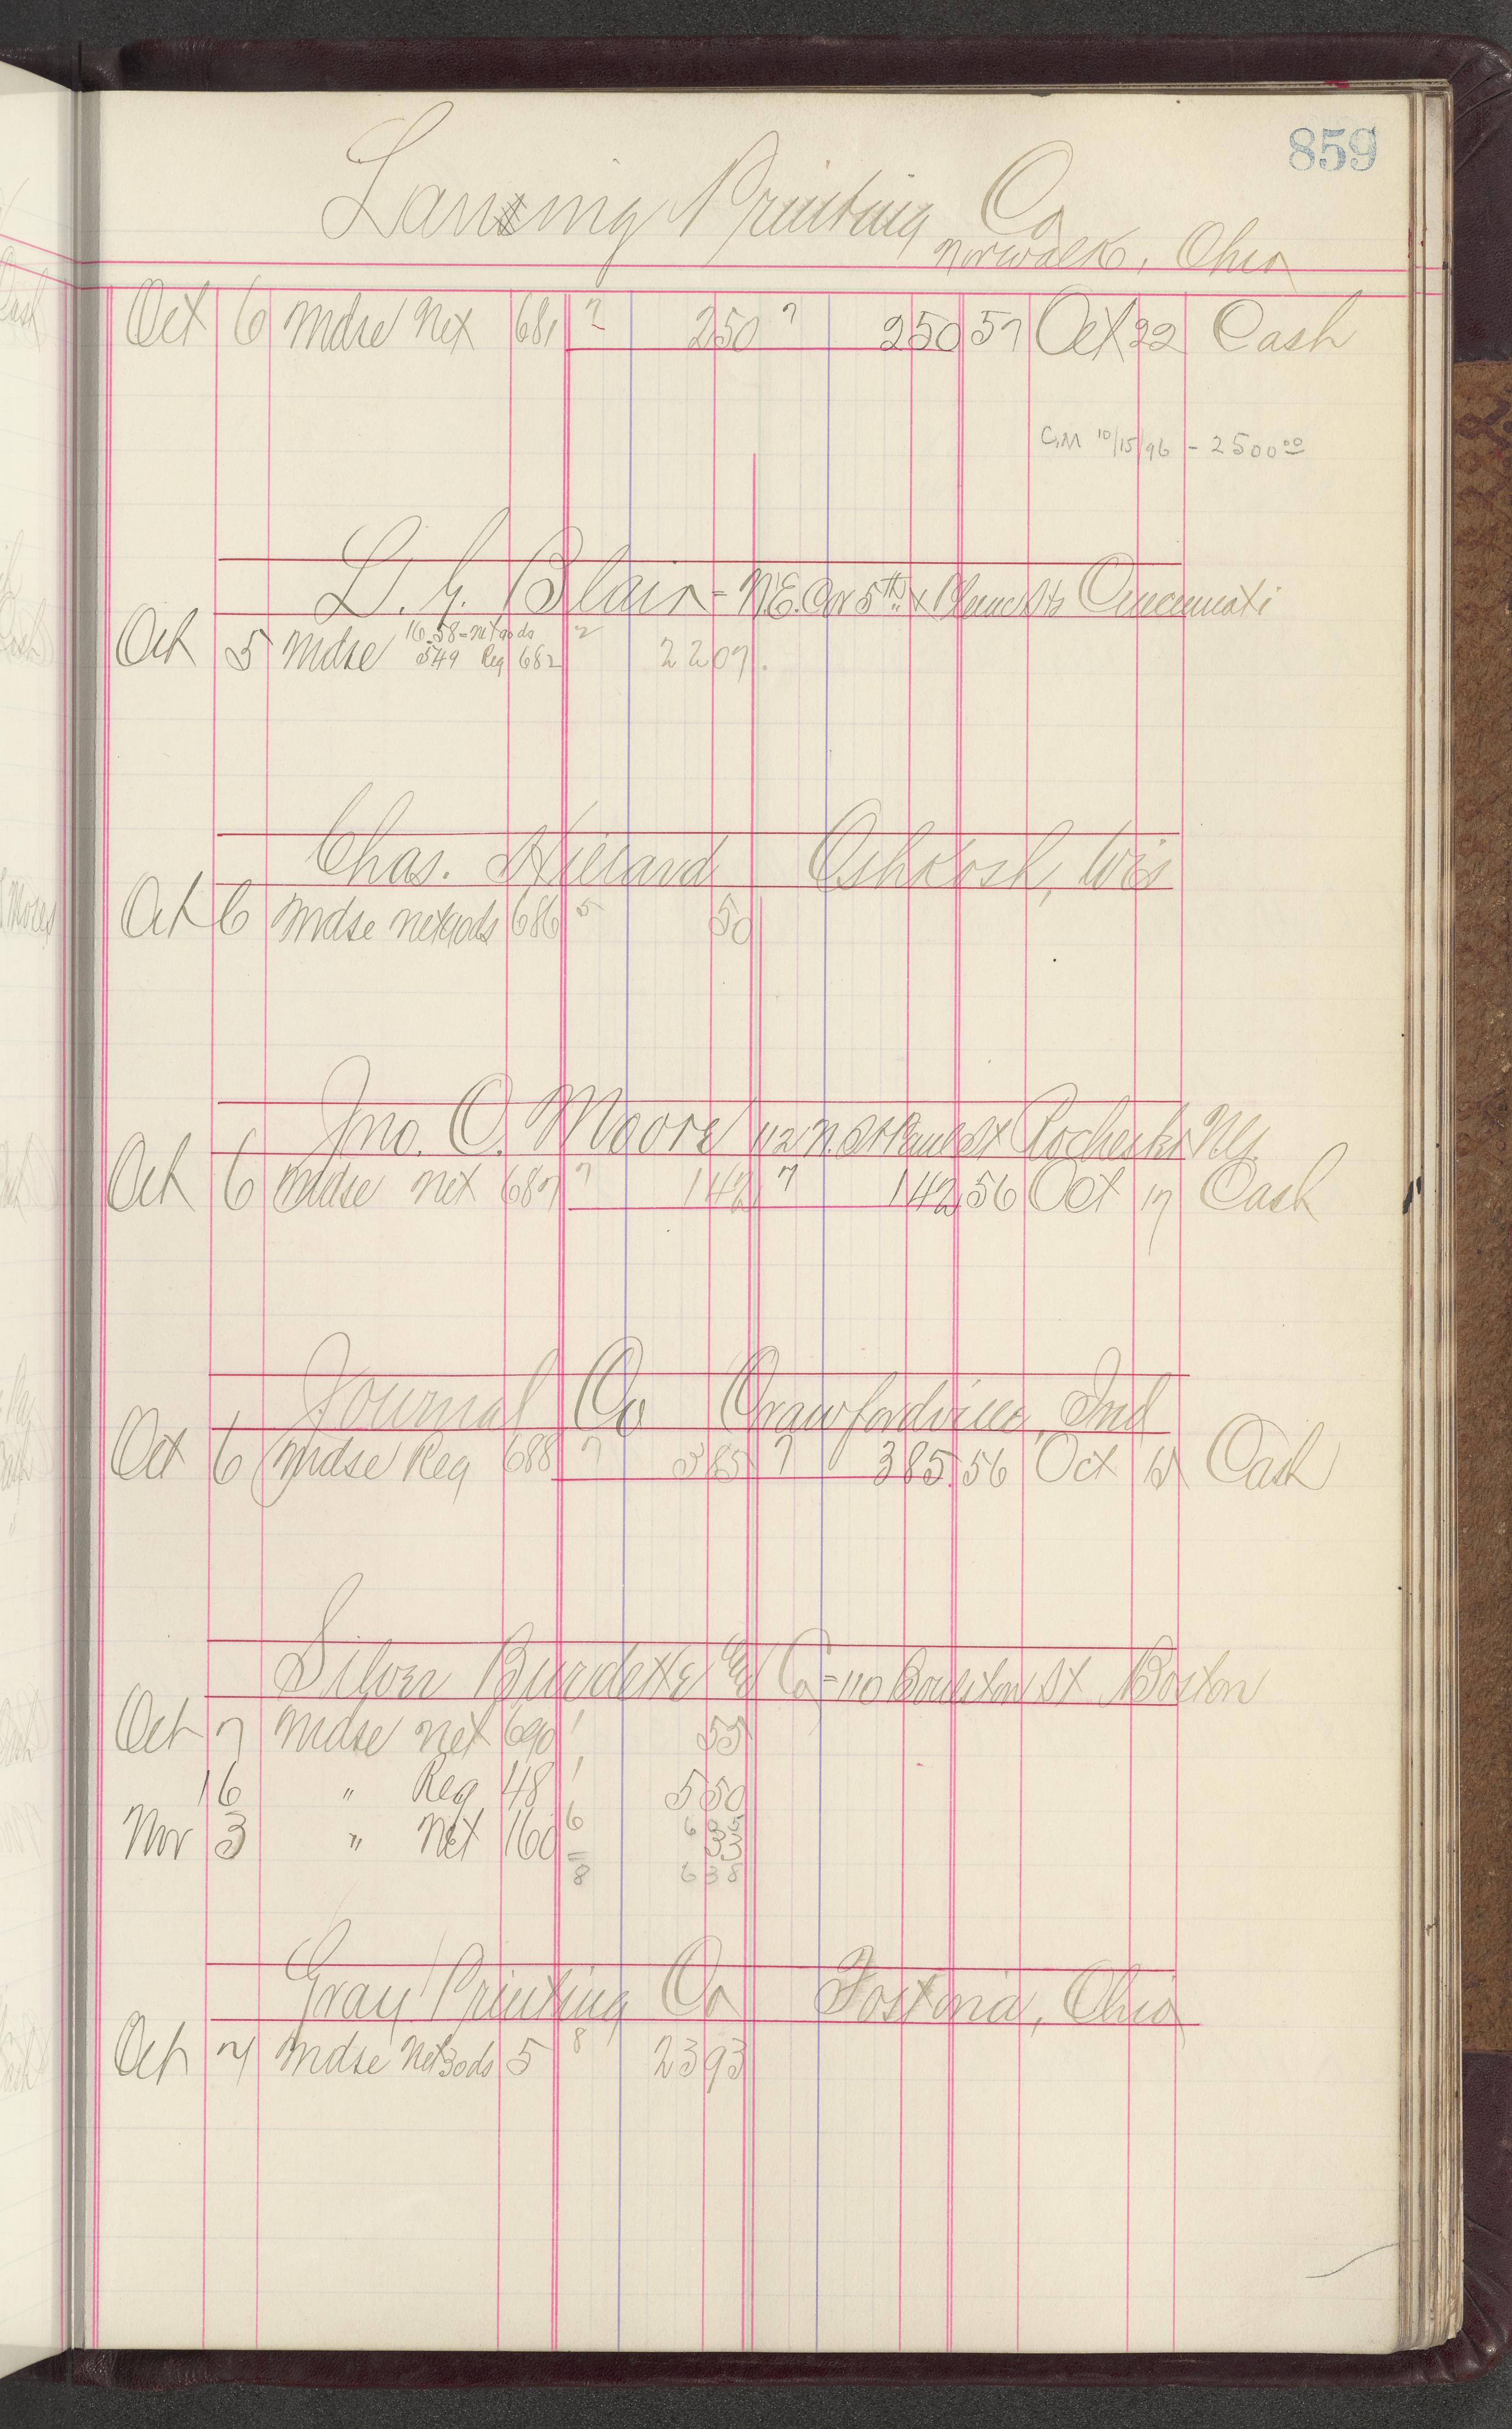 859
Lansing Printing Co
Norwalk, Ohio
Oct 6 Mdse Net 681 7 250 7 250 57 Oct 22 Cash
CM 10/15/96 - 2500 00
L. G. Blair - N.E. Cor 5th & Plum Sts Cincinnati
16.58 = net gods 2
Oct 5 Mdse 549 Reg 682 2207.
Chas. Hillard Oshkosh, Wis
Oct 6 Mdse net gods 686 5 50
Jno. C. Moore 112 N. St Paul St Rochester NY.
Oct 6 Mdse net 687 7 142 7 142 56 Oct 17 Cash
Journal Co Crawfordville, Ind
Oct 6 Mdse Reg 688 7 385 7 385 56 Oct Cash
Silver Burdette & Co = 110 Boylston St Boston
Oct 7 Mdse net 690 1 55
16 " Reg 48 1 550
Nov 3 " Net 160 6 33
8 638
Gray Printing Co Fostoria, Ohio
Oct 7 Mdse Net 30ds 5 8 2393